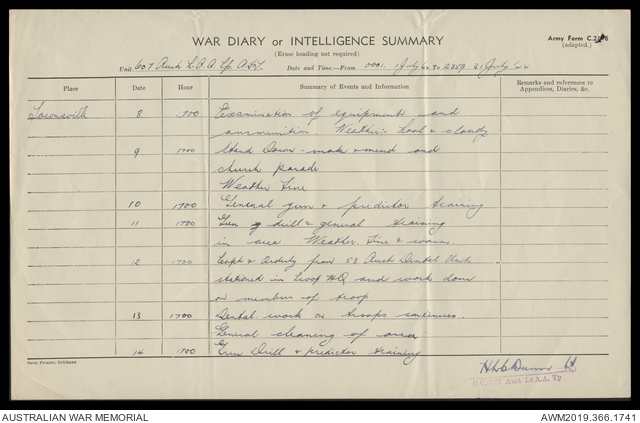 WAR DIARY or INTELLIGENCE SUMMARY
Army Form C.2118
(adapted.)
(Erase heading not required)
Unit 607 Aust L.A.A. Tp A.I.F. Date and Time—From 0001. 1 July 44 To 2359 31 July 44
Place Date Hour Summary of Events and Information Remarks and references to Appendices, Diaries, &c.
Townsville 8 1700 Examination of equipment and
ammunition. Weather:- Cool & cloudy
9 1700 Stand Down - make & mend and
church parade
Weather Fine
10 1700 General gun & predictor training
11 1700 Gun drill & general training
in area Weather. Fine & warm.
12 1700 Capt & Orderly from 53 Aust Dental Unit
stationed in troop HQ and work done
on members of troop
13 1700 Dental work on troops continues.
General cleaning of area
14 1700 Gun Drill & predictor training
Govt. Printer, Brisbane
Lt
O.C. Aust Lt A.A. Tp
AUSTRALIAN WAR MEMORIAL
AWM2019.366.1741